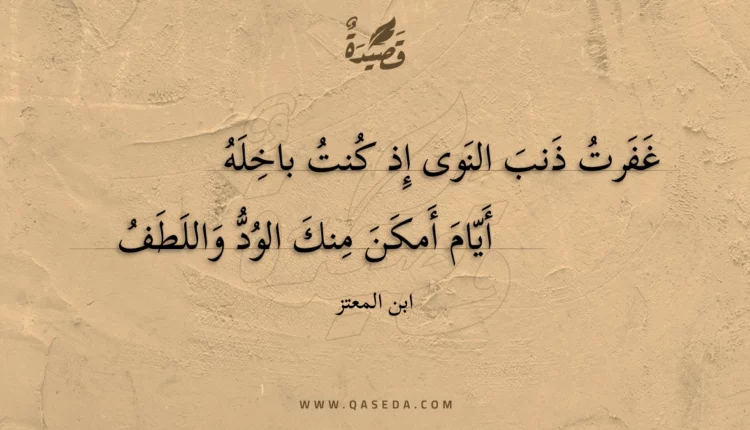 قَصِيدَةٌ
غَفَرتُ ذَنبَ النَوى إِذ كُنتُ باخِلَهُ
أَيّامَ أَمكَنَ مِنكَ الوُدُّ وَاللَطَفُ
ابن المعتز
WWW.QASEDA.COM